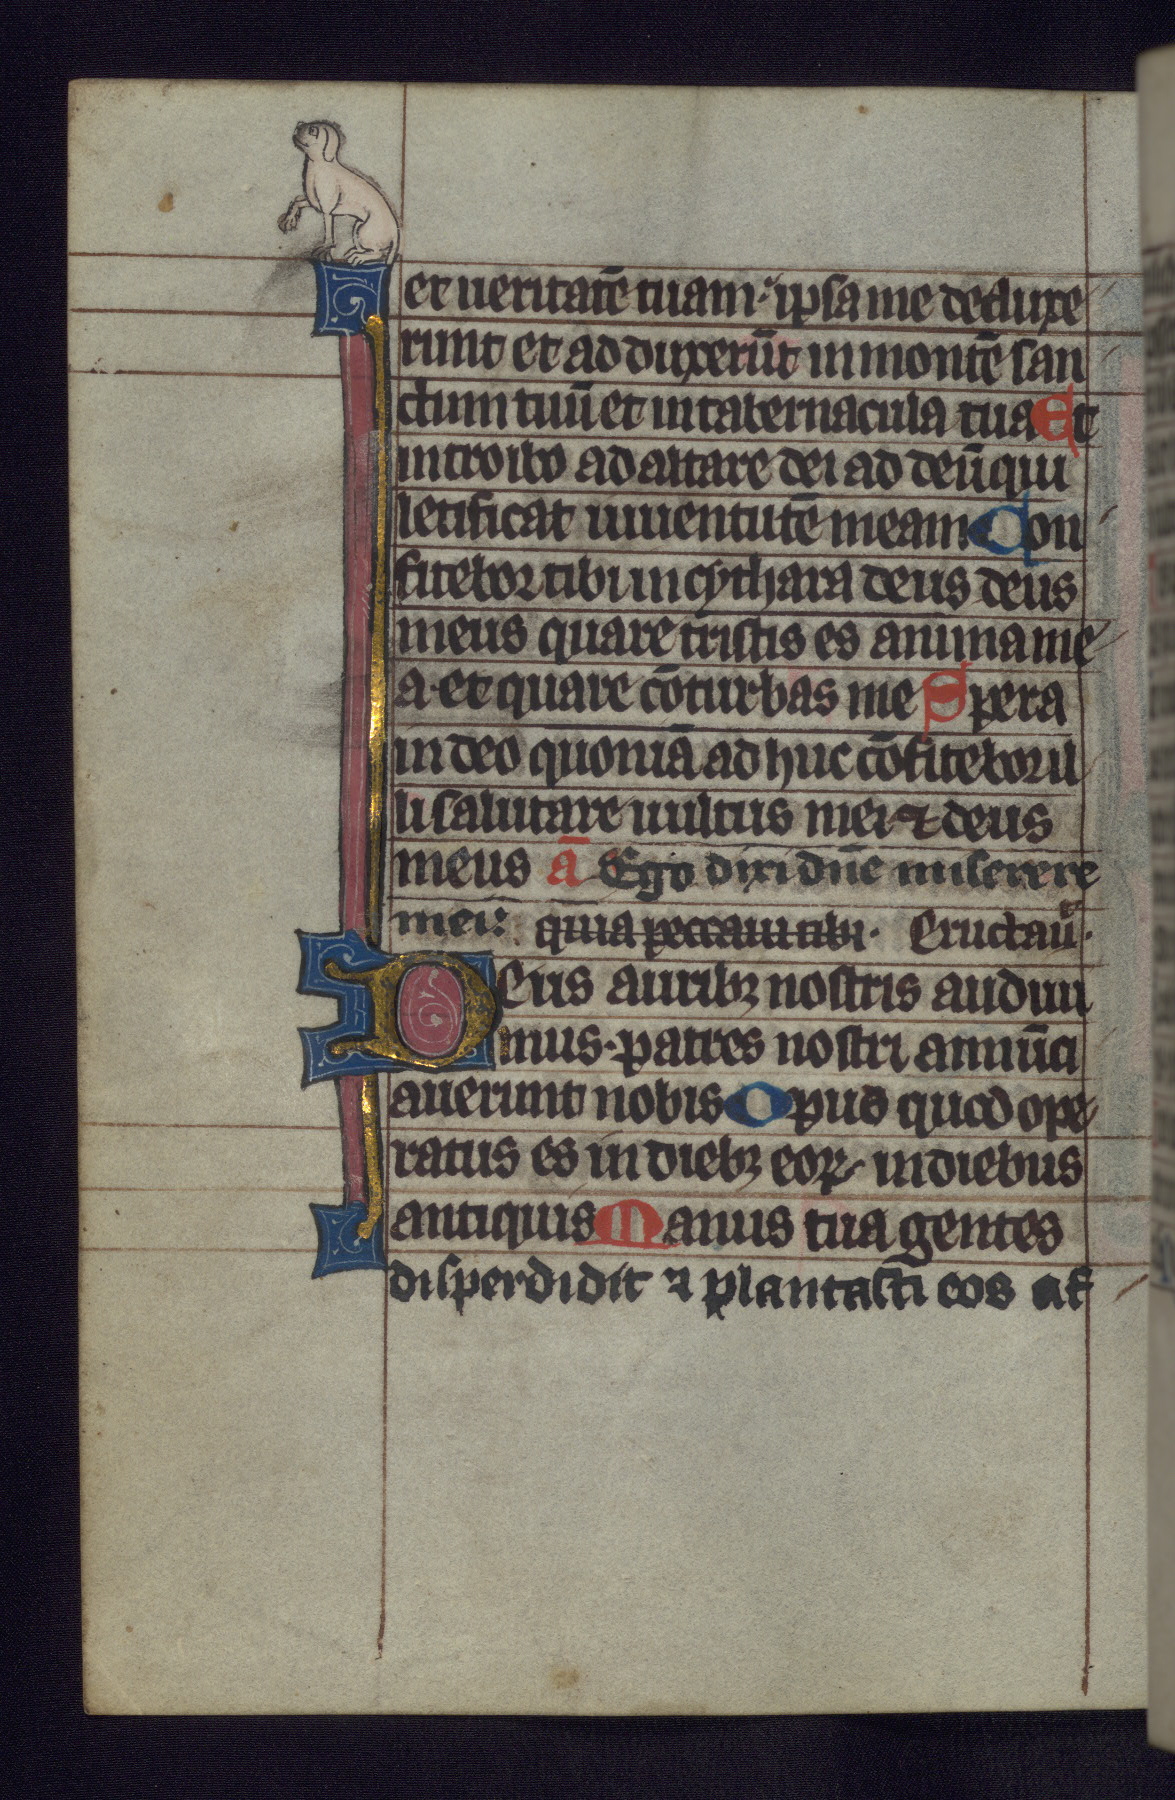 et ueritatē tuam· ipsa me deduxe
runt et adduxerūt in montē san
ctum tuū et in tabernacula tua Et
introibo ad altare dei ad deū qui
letificat iuuentutē meam Con
fitebor tibi in cythara deus deus
meus quare tristis es anima me
a· et quare cōturbas me Spera
in deo quoniā adhuc cōfitebor il
li salutare uultus mei ⁊ deus
meus aᷓ Ego dixi dn̄e miserere
mei: quia peccaui tibi· Eructau̅·
DEus auribꝫ nostris audiui
mus· patres nostri annūci
auerunt nobis Opus quod ope
ratus es in diebꝫ eoꝝ in diebus
antiquis Manus tua gentes
disperdidit ⁊ plantasti eos af